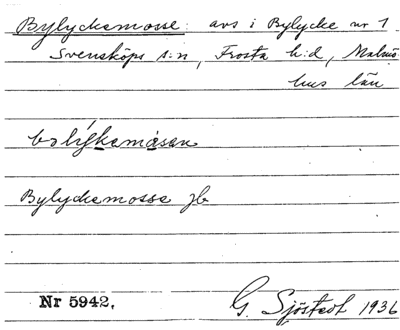 Bylyckemosse: avs i Bylycke nr 1
Svensköps s:n, Frosta h:d, Malmö
hus län
bolýkamåsan
Bylyckemosse jb
Nr 5942.
G. Sjöstedt 1936